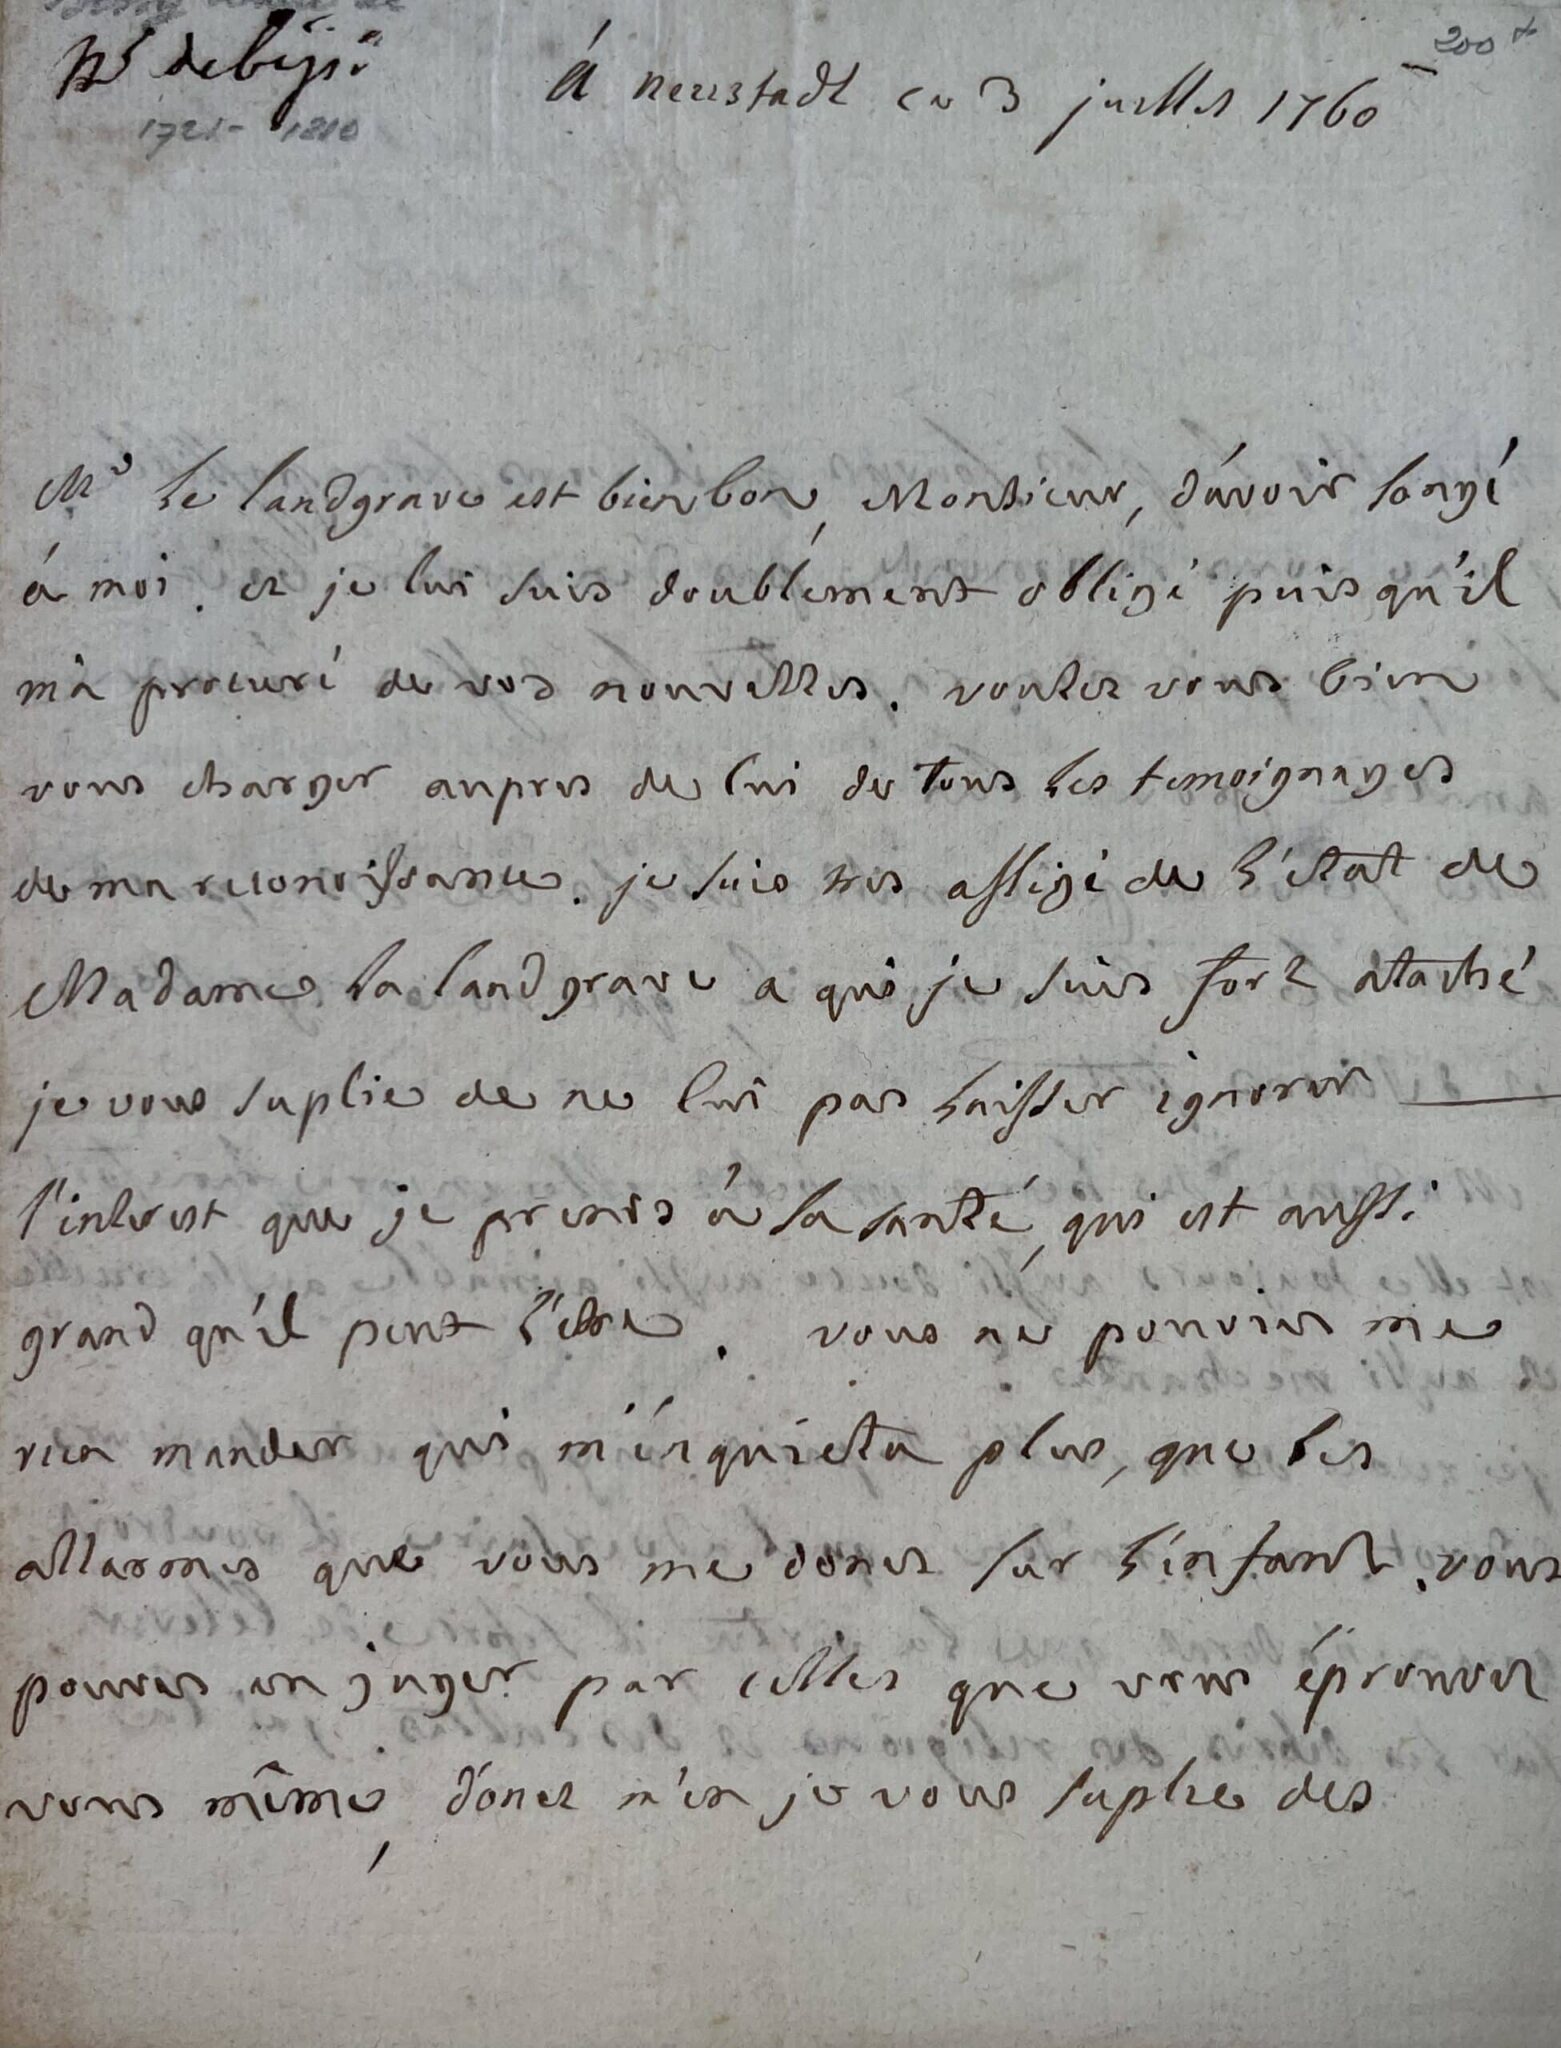 1721 - 1810
200 #
á neustadt ce 3 juillet 1760
Mr le landgrave est bien bon, Monsieur, d'avoir songé
á moi. et je lui suis doublement obligé puis qu'il
m'a procuré de vos nouvelles. voulez vous bien
vous charger aupres de lui de tous les temoignages
de ma reconoissance. je suis tres affligé de l'état de
Madame la landgrave a qui je suis fort ataché
je vous suplie de ne lui pas laisser ignorer
l'interest que je prends á sa santé, qui est aussi
grand qu'il peut l'etre. vous ne pouviez me
rien mander qui m'inquieta plus, que les
allarmes que vous me donez sur l'infant. vous
pouvez en juger par celles que vous éprouvez
vous même, donez m'en je vous suplie des